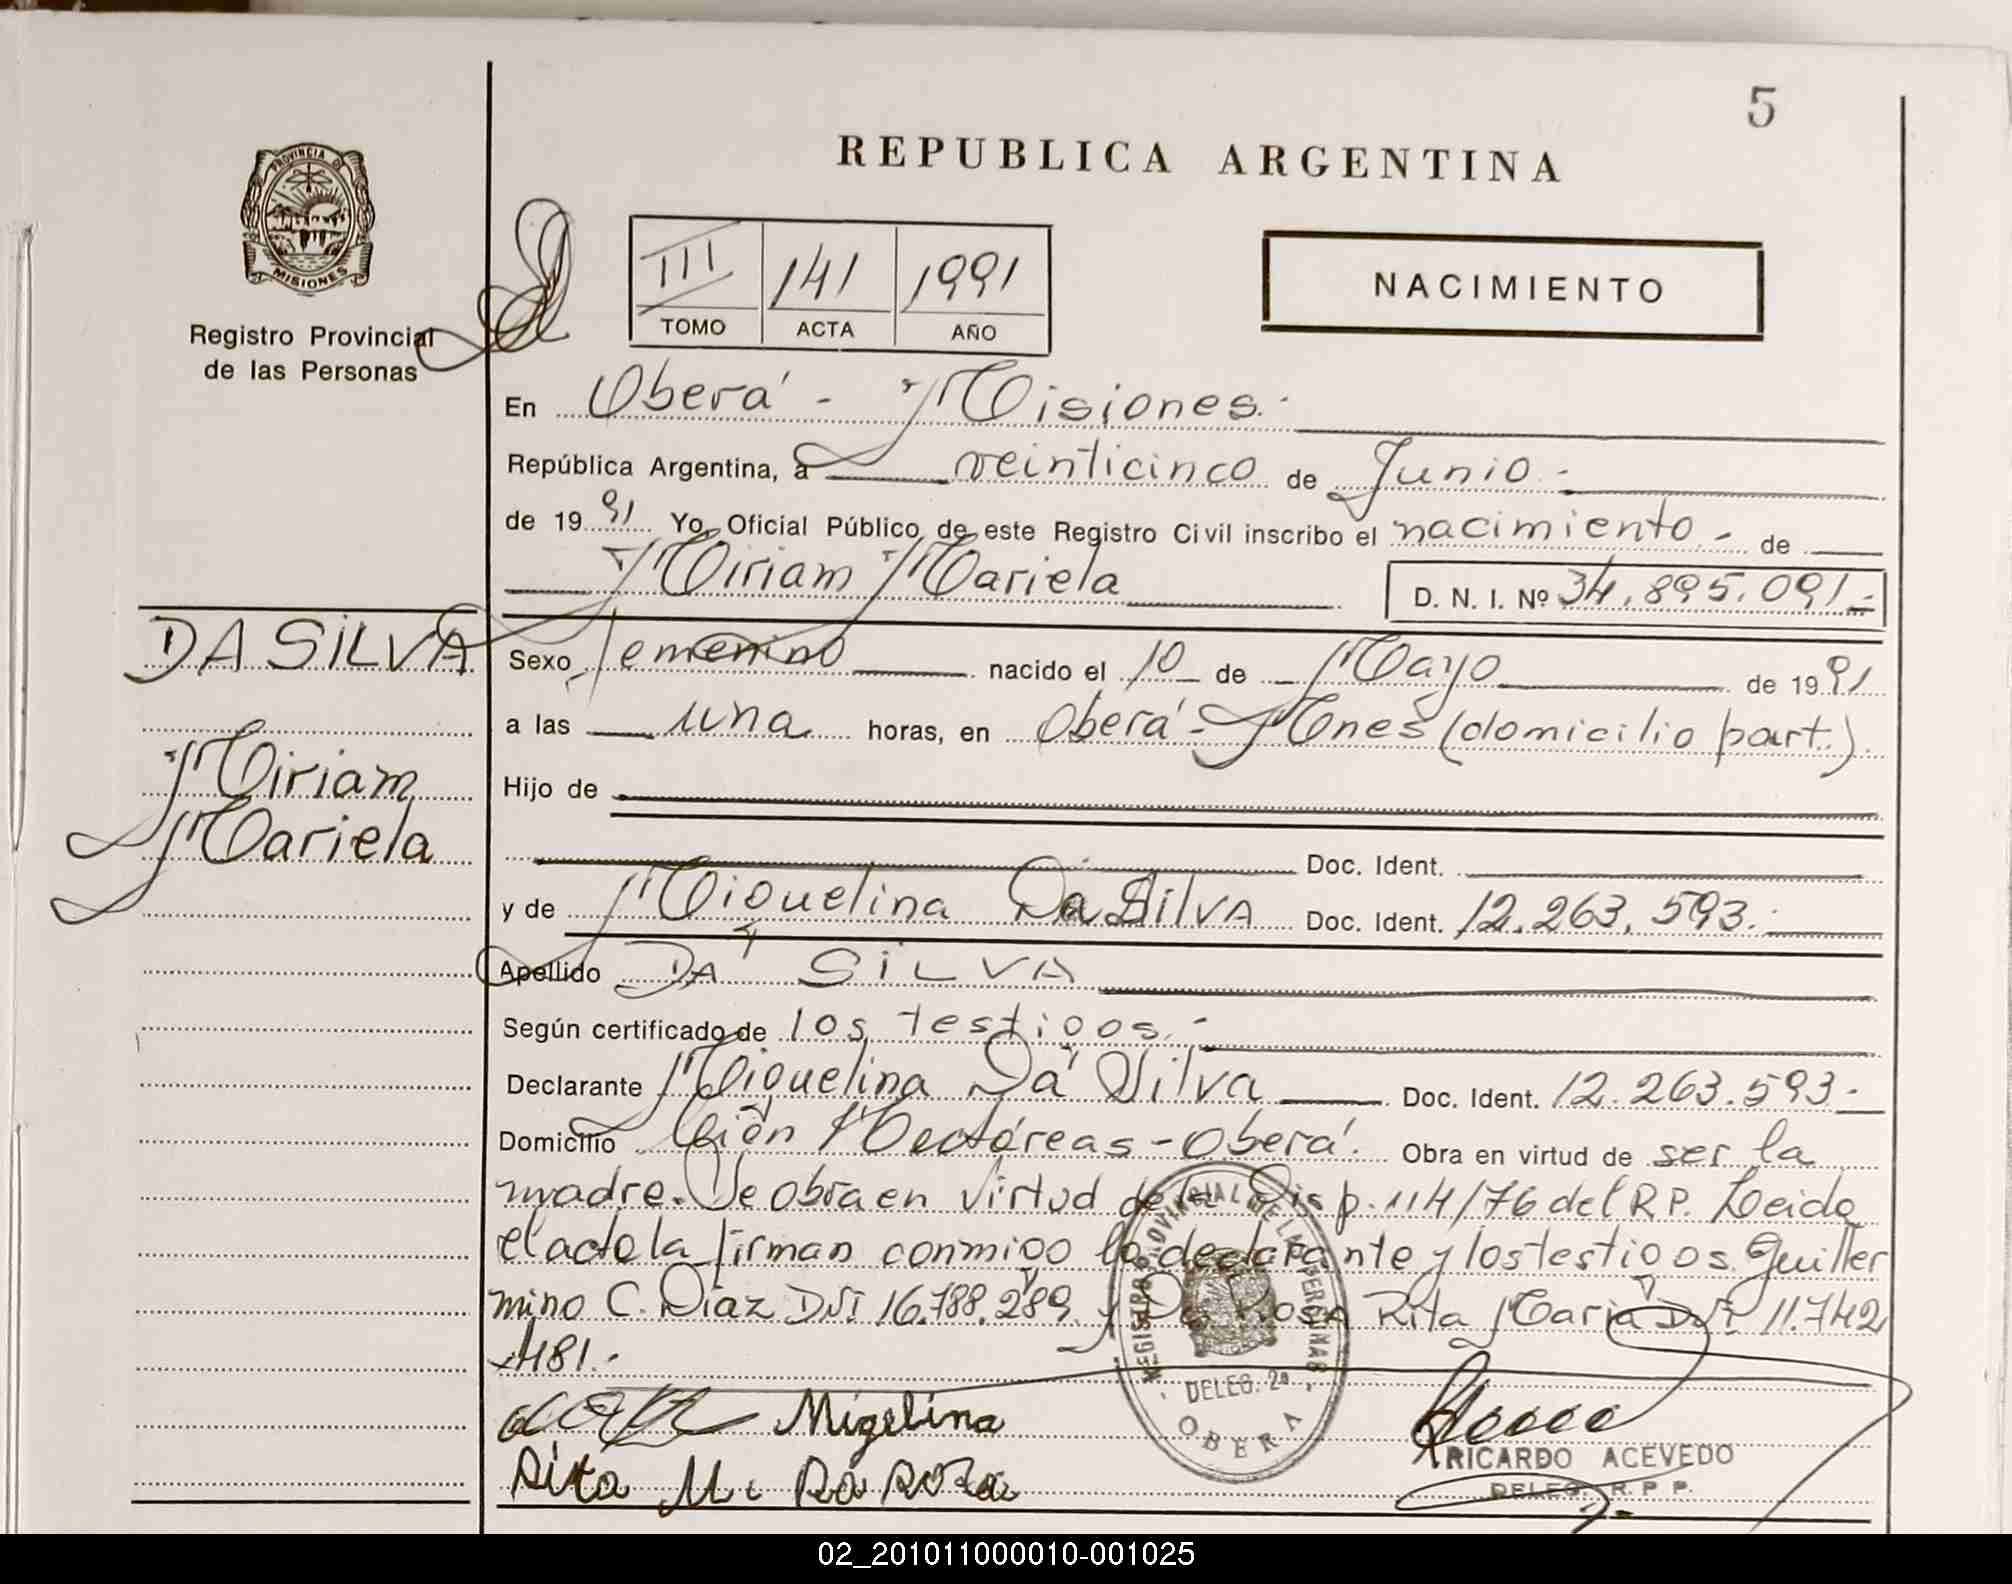 5
REPUBLICA ARGENTINA
PROVINCIA DE
MISIONES
Registro Provincial
de las Personas
III 141 1991
TOMO ACTA AÑO
NACIMIENTO
En Oberá - Misiones.-
República Argentina, a veinticinco de Junio.-
de 1991 Yo, Oficial Público de este Registro Civil inscribo el nacimiento - de
Miriam Mariela D. N. I. Nº 34.895.091.-
DA SILVA
Sexo femenino nacido el 10 de Mayo de 1991
a las una horas, en Oberá - Mnes (domicilio part.).
Miriam
Mariela
Hijo de
Doc. Ident.
y de Miguelina Da Silva Doc. Ident. 12.263.593.-
Apellido DA SILVA
Según certificado de los testigos.-
Declarante Miguelina Da Silva Doc. Ident. 12.263.593.-
Domicilio Cien Hectáreas - Oberá. Obra en virtud de ser la
madre. Se obra en virtud de la Disp. 114/76 del R.P. Leida
el acta la firman conmigo la declarante y los testigos Guiller
mino C. Díaz DNI 16.788.289. y Da Rosa Rita Maria DNI. 11.742
.481.-
Migelina
Rita M. Da Roza
REGISTRO PROVINCIAL DE LAS PERSONAS
- DELEG. 2ª -
OBERA
RICARDO ACEVEDO
DELEG. R. P. P.
02_201011000010-001025